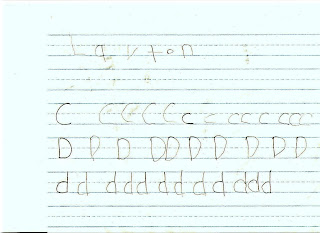 L a y t o n
C C C C C c c cc c ccc
D D D DD D D D D D
d d d d d d d d d ddd